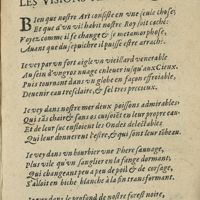 LES VISIONS
Bien que nostre Art consiste en une seule chose,
Et que d'un vil habit nostre Roy soit caché:
Voyez comme il se change & se metamorphose,
Avant que du sepulchre il puisse estre arraché.
Je vey par un fort aigle un vieillard venerable
Au sein d'un gros nuage enlever jusqu'aux Cieux.
Puis tournant dans un globe en façon effroyable,
Devenir eau tresclaire, & sel tres precieux.
Je vey dans nostre mer deux poissons admirables,
Qui sãs chair & sans os cuisoiẽt en leur propre eau:
Et de leur suc enfloient les Ondes delectables
Qui leur donnerent l'estre, & qui sont leur tõbeau.
Je vey dans un bourbier une Phere sauvage,
Plus vile qu'un sanglier en la fange dormant,
Qui changeant peu à peu de poil & de corsage,
S'alloit en biche blanche à la fin transformant.
Je vey dans le profond de nostre forest noire,